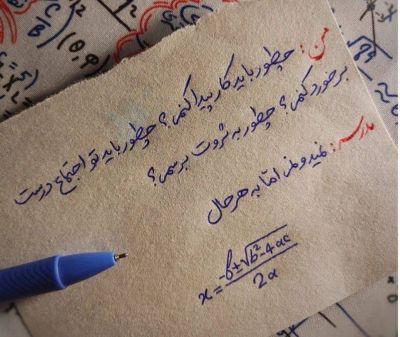 من: چطور باید کار پیدا کنم؟ چطور باید تو اجتماع درست
برخورد کنم؟ چطور به ثروت برسم؟
مدرسه: نمیدونم اما به هر حال
x = (-b ± √(b² - 4ac)) / 2a
(θ, φ)